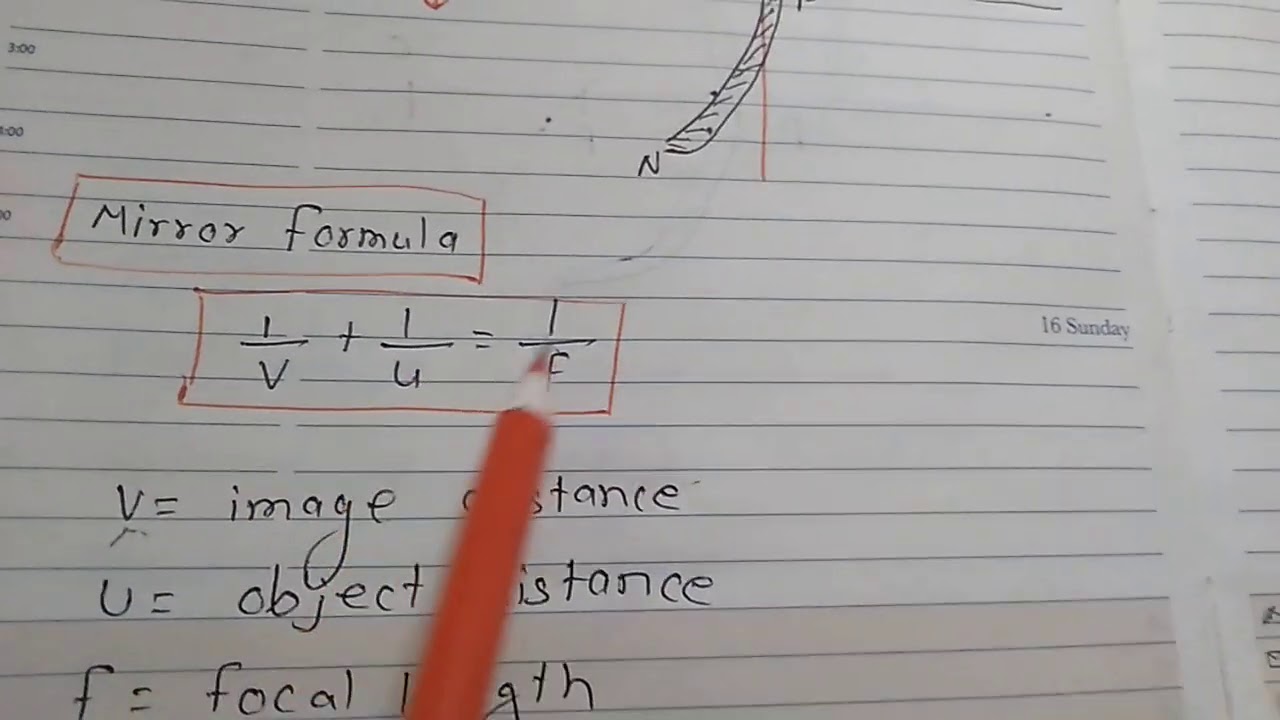 3:00
N
Mirror formula
1/V + 1/u = 1/f
16 Sunday
V = image distance
U = object distance
f = focal length